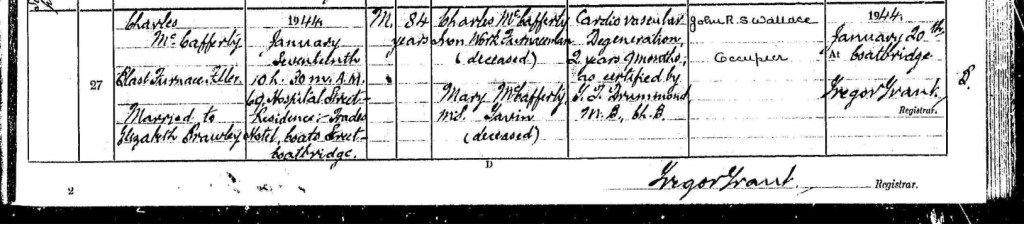 27
Charles
McCafferty
Blast Furnace Filler
Married to
Elizabeth Brawley
1944
January
Seventeenth
10 h. 30 m. A.M.
69 Hospital Street
Residence: Trades
Hotel, Coats Street
Coatbridge.
M.
84
years
Charles McCafferty
Iron Work Furnaceman
(deceased)
Mary McCafferty
M.S. Gavin
(deceased)
Cardio vascular
Degeneration,
2 years 9 months;
as certified by
T. T. Drummond
M.B., Ch.B.
John R.S Wallace
Occupier
1944
January 20th
At Coatbridge
Gregor Grant.
Registrar.
D
2
Gregor Grant.
Registrar.